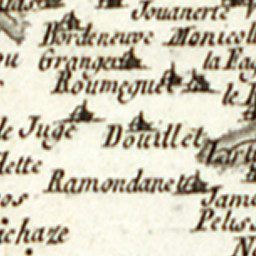 Jouanerie
Bordeneuve Monicoll
ou Granges la Fag
Roumeguet
le Juge Douillet
lette
Ramondanet
os Jame
Peliss
ichaze